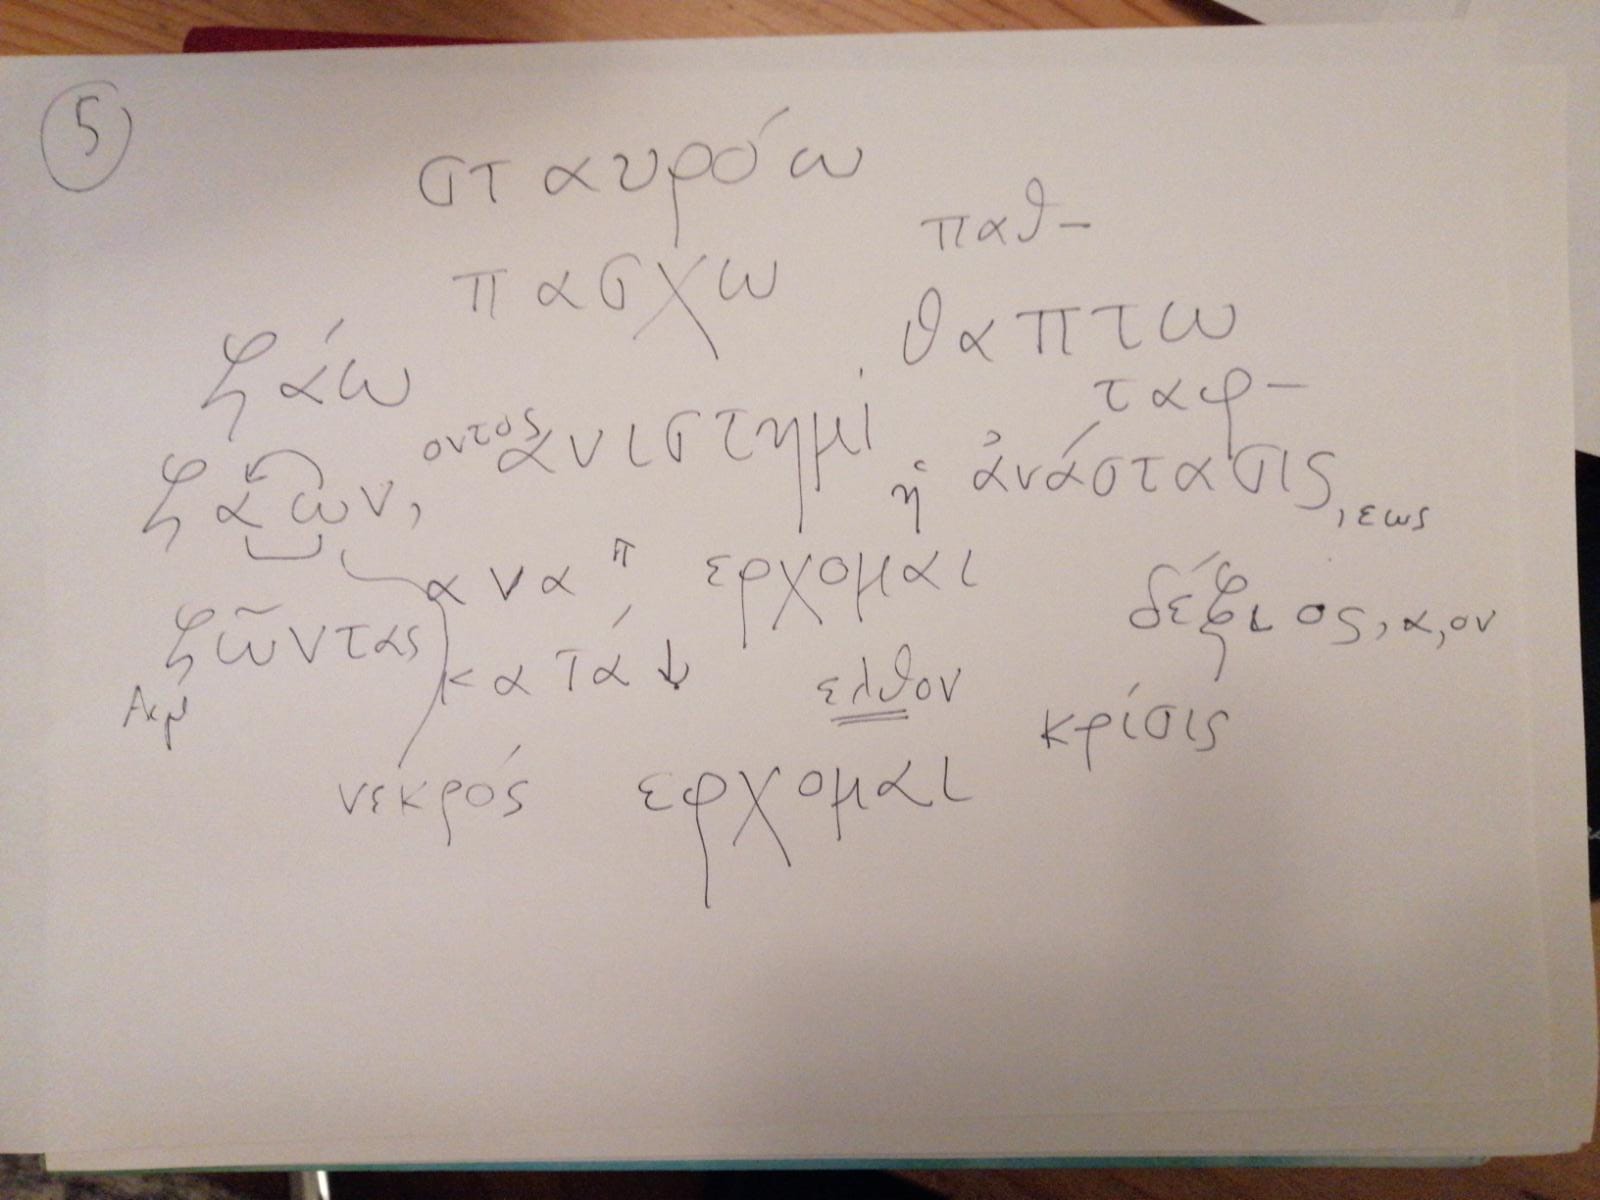 5
σταυρόω
παθ-
πασχω
θαπτω
ζάω
ταφ-
ζαων, οντος
ἀνιστημι
ἡ ἀνάστασις, εως
ανα
ερχομαι
δέξιος, α, ον
ζῶντας
κατά ↓
ελθον
Ακμ
κρίσις
νεκρός
ερχομαι